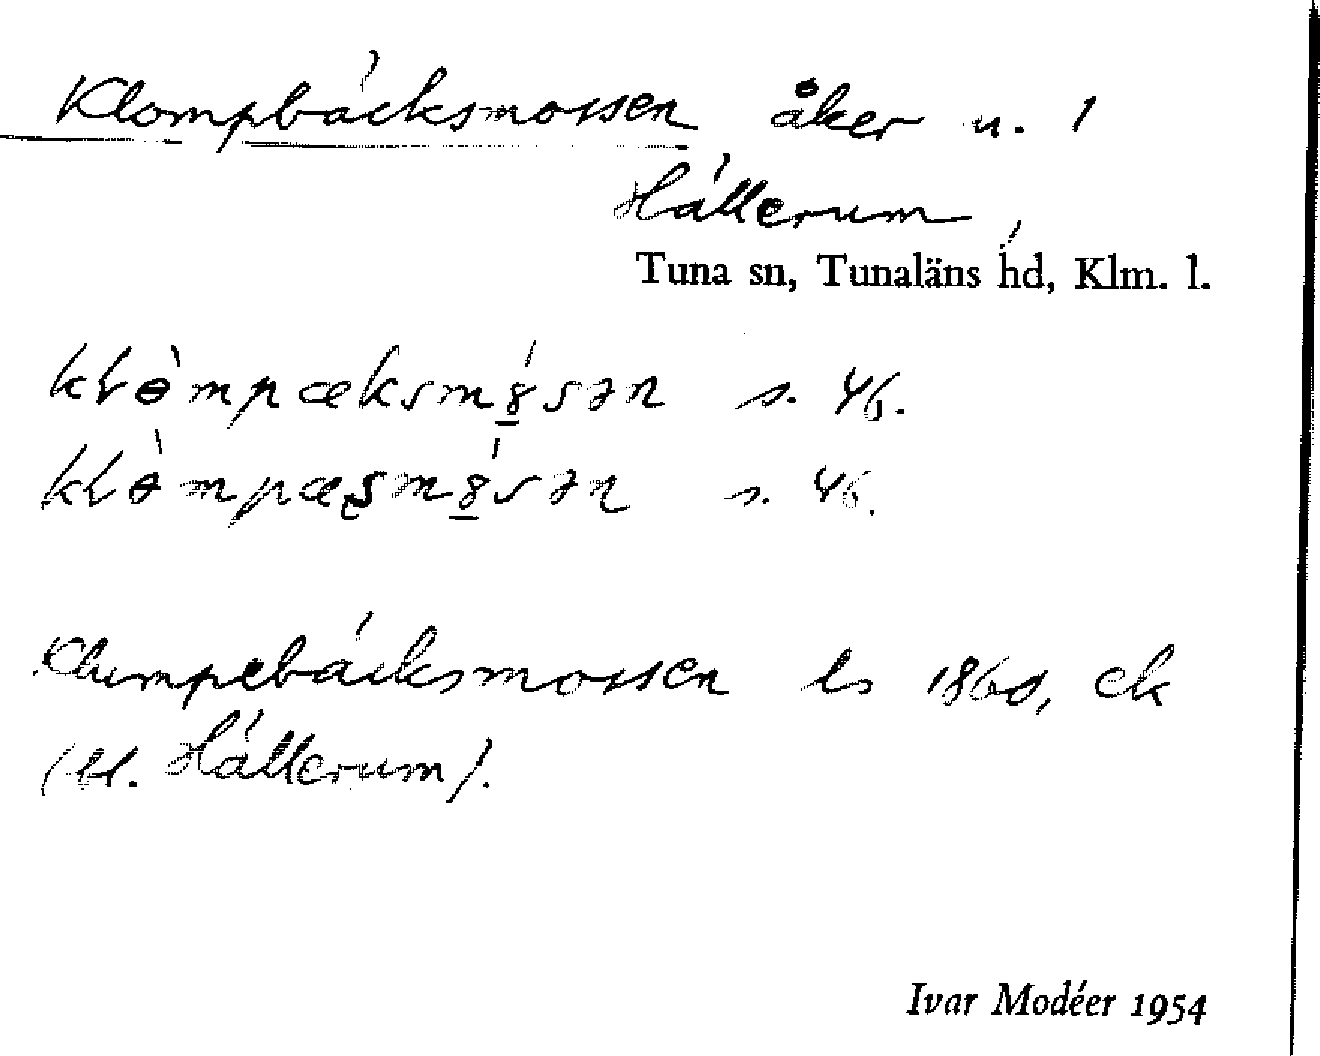 Klompbäcksmossen åker u. 1
Hällerum
Tuna sn, Tunaläns hd, Klm. l.
s. 46.
s. 46.
Klumpebäcksmossen ls 1860, ek
Hällerum).
Ivar Modéer 1954